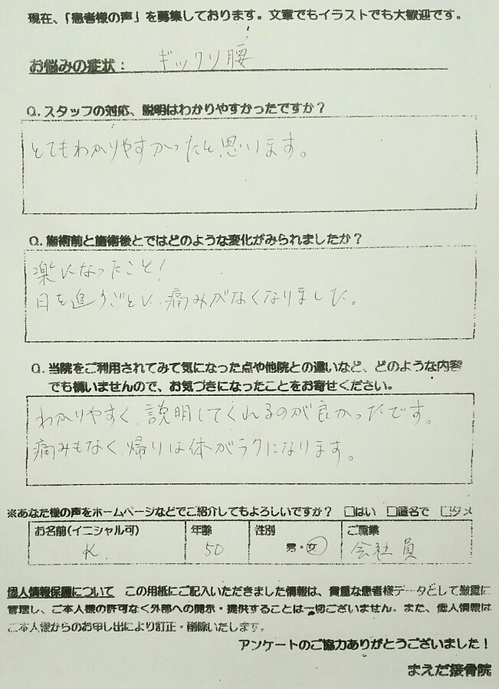 現在、「患者様の声」を募集しております。文章でもイラストでも大歓迎です。
お悩みの症状： ギックリ腰
Q.スタッフの対応、説明はわかりやすかったですか？
とてもわかりやすかったと思います。
Q.施術前と施術後とではどのような変化がみられましたか？
楽になったこと！
日を追うごとに、痛みがなくなりました。
Q.当院をご利用されてみて気になった点や他院との違いなど、どのような内容
でも構いませんので、お気づきになったことをお寄せください。
わかりやすく、説明してくれるのが良かったです。
痛みもなく、帰りは体がラクになります。
※あなた様の声をホームページなどでご紹介してもよろしいですか？ □はい □匿名で □ダメ
お名前(イニシャル可) 年齢 性別 ご職業
K. 50 男・女 会社員
個人情報保護について この用紙にご記入いただきました情報は、貴重な患者様データとして厳重に
管理し、ご本人様の許可なく外部への開示・提供することは一切ございません。また、個人情報は
ご本人様からのお申し出により訂正・削除いたします。
アンケートのご協力ありがとうございました！
まえだ接骨院